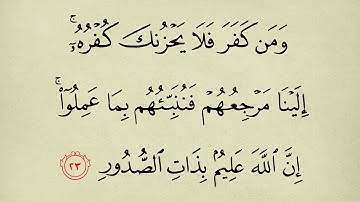 وَمَن كَفَرَ فَلَا يَحْزُنكَ كُفْرُهُۥٓ ۚ
إِلَيْنَا مَرْجِعُهُمْ فَنُنَبِّئُهُم بِمَا عَمِلُوٓا۟ ۚ
إِنَّ ٱللَّهَ عَلِيمٌۢ بِذَاتِ ٱلصُّدُورِ ٢٣